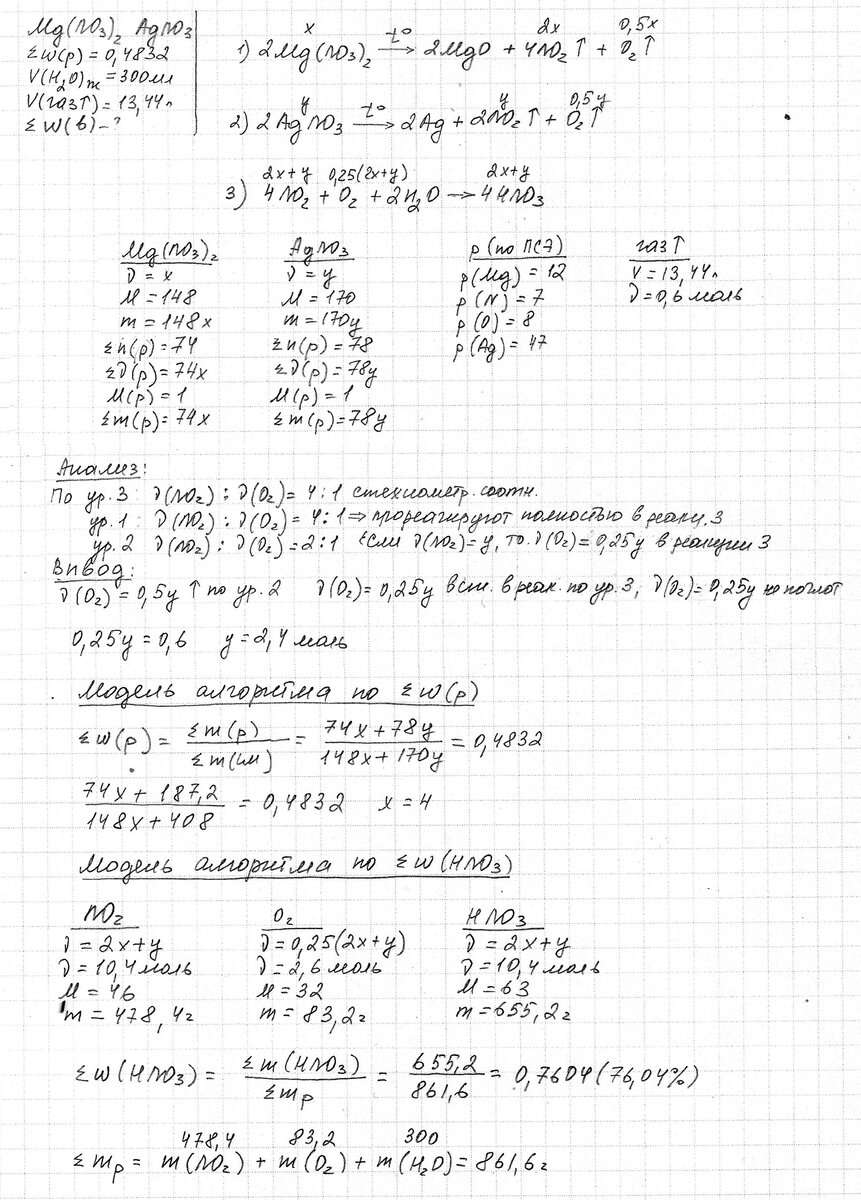 Mg(NO3)2 AgNO3
Σw(p) = 0,4832
V(H2O)ж = 300мл
V(газ↑) = 13,44л
Σw(в) – ?
x 2x 0,5x
1) 2Mg(NO3)2 —t°→ 2MgO + 4NO2↑ + O2↑
y y 0,5y
2) 2AgNO3 —t°→ 2Ag + 2NO2↑ + O2↑
2x+y 0,25(2x+y) 2x+y
3) 4NO2 + O2 + 2H2O → 4HNO3
Mg(NO3)2
ν = x
M = 148
m = 148x
Σn(p) = 74
Σν(p) = 74x
M(p) = 1
Σm(p) = 74x
AgNO3
ν = y
M = 170
m = 170y
Σn(p) = 78
Σν(p) = 78y
M(p) = 1
Σm(p) = 78y
p (по ПСЭ)
p(Mg) = 12
p(N) = 7
p(O) = 8
p(Ag) = 47
газ↑
V = 13,44л
ν = 0,6 моль
Анализ:
По ур. 3 : ν(NO2) : ν(O2) = 4 : 1 стехиометр. соотн.
ур. 1 : ν(NO2) : ν(O2) = 4 : 1 ⇒ прореагируют полностью в реакц. 3
ур. 2 ν(NO2) : ν(O2) = 2 : 1 Если ν(NO2) = y, то ν(O2) = 0,25y в реакции 3
Вывод:
ν(O2) = 0,5y ↑ по ур. 2 ν(O2) = 0,25y вст. в реак. по ур. 3, ν(O2) = 0,25y не поглот
0,25y = 0,6 y = 2,4 моль
Модель алгоритма по Σw(p)
Σw(p) = Σm(p) / Σm(см) = 74x + 78y / 148x + 170y = 0,4832
74x + 187,2 / 148x + 408 = 0,4832 x = 4
Модель алгоритма по Σw(HNO3)
NO2
ν = 2x+y
ν = 10,4 моль
M = 46
m = 478,4г
O2
ν = 0,25(2x+y)
ν = 2,6 моль
M = 32
m = 83,2г
HNO3
ν = 2x+y
ν = 10,4 моль
M = 63
m = 655,2г
Σw(HNO3) = Σm(HNO3) / Σmp = 655,2 / 861,6 = 0,7604 (76,04%)
478,4 83,2 300
Σmp = m(NO2) + m(O2) + m(H2O) = 861,6г